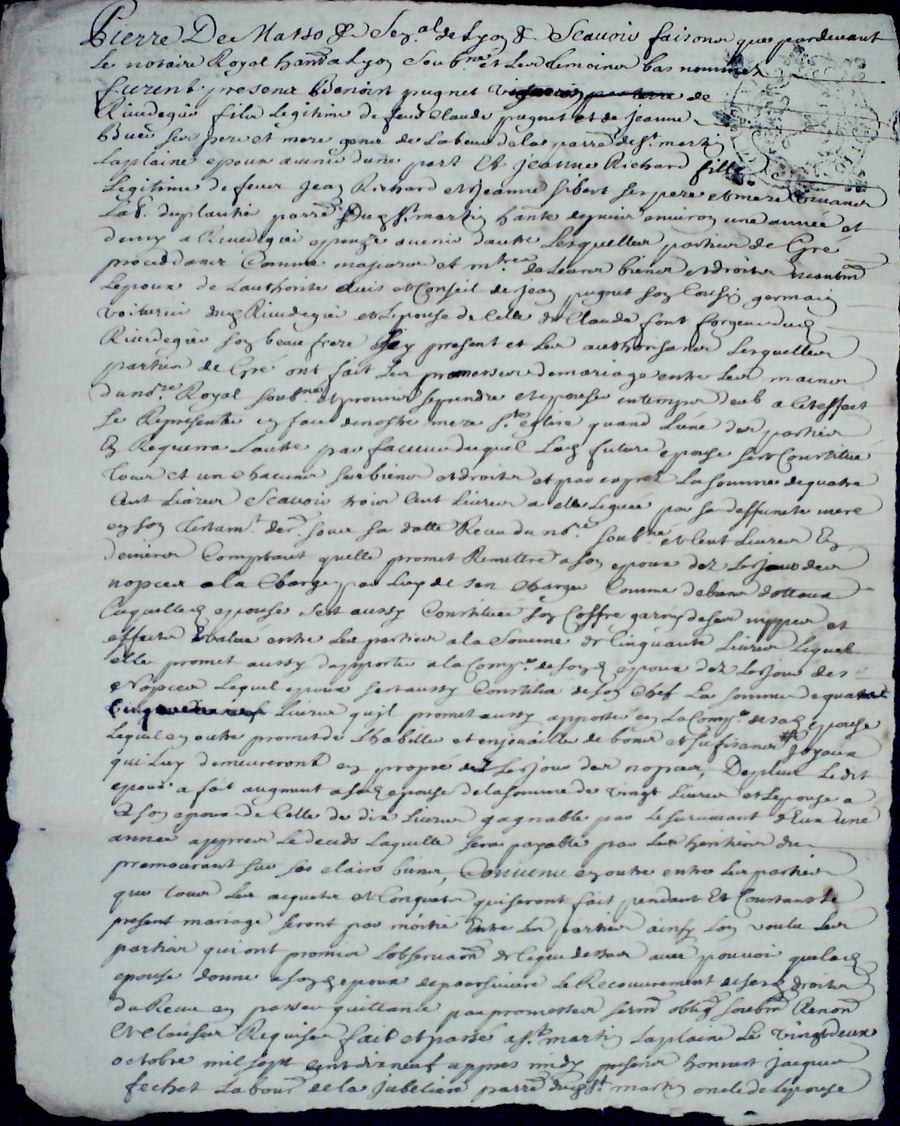 Pierre De Masso & Senal de Lyon & Scavoir faisons que pardevant
Le notaire Royal hanta Lyon Soubne et Les temoins bas nommez
furent presens Benoist pugnet de
Rivedegié fils Legitime de feus Claude pugnet et de jeanne
ses pere et mere gens de Labeur de la parre de st martin
Laplaine epoux avenir dune part Et jeanne Richard fille
Legitime de feux jean Richard et jeanne gibert ses pere et mere vivants
parre Dud st martin hante depuis environ une année et
demy a Rivedegié epouze avenir dautre Lesquelles parties de Gré
proceddants Comme majeurs et mtres de Leurs biens et droits neantm
Lepoux de Lauthorité avis et Conseil de jean pugnet son Cousin germain
voiturier dud Rivedegié et Lepouse de Celle de Claude font forgeur dud
Rivedegié son beau frere Icy present et Les authorisants Lesquelles
parties de Gré ont fait Les promesses de mariage entre Les mains
du notre Royal soubne et promis se prendre et epouser en temps deub a Cet effect
se Representer en face de nostre mere ste eglise quand Lune des parties
en Requerra Lautre par faveur duquel Lad future epouse sest Constitué
tous et un chacuns ses biens et droits et par exprés La somme de quatre
Cent Livres Scavoir trois Cent Livres a elle Leguée par sa deffunte mere
en son testamt der sous sa datte Receu du nore soubne et Cent Livres En
deniers Comptant quelle promet Remettre a son epoux dez Lejour des
nopces a la Charge par Luy de sen Charger Comme de biens dottaux
Laquelle epouse sest aussy Constituée son Coffre garny de ses nippes et
effects Evalué entre Les parties a la Somme de Cinquante Livres Lequel
elle promet aussy dapporter a la Compe de sond epoux dez Lejour des
Nopces Lequel epoux sest aussy Constitué de son Chef La somme de quatre
Livres quil promet aussy apporter en La Compe de sad epouse
Lequel en outre promet de Lhabiller et enjoualler de bons et sufisants # Joyaux
qui Luy demeureront en propre dez Lejour des nopces, Deplus Ledit
epoux a fait augment a sad epouse de la somme de vingt Livres et Lepouse a
son epoux de Celle de dix Livres gagnable par Le survivant d'Eux une
année appres Le deceds Laquelle sera payable par Les heritiers du
premourant sur ses clairs biens, Convenu en outre entre Les parties
que tous Les acquets et Conquets qui seront fait pendant Et Constant Le
present mariage seront par moitié Entre Les parties ainsy Lon voulu Les
parties qui ont promis Lobservaon de Ceque dessus avec pouvoir que lad
epouse donne a sond epoux de poursuivre Le Recouvrement de ses droits
du Receu en passer quittance par promesses serm oblig soubm Renon
Et clauses Requises fait et passé a st martin Laplaine Le vingt deux
octobre mil sept cent dix neuf appres midy presens honnest jacques
fechet Labour de la jubeliere parre dud st martin oncle de Lepouse